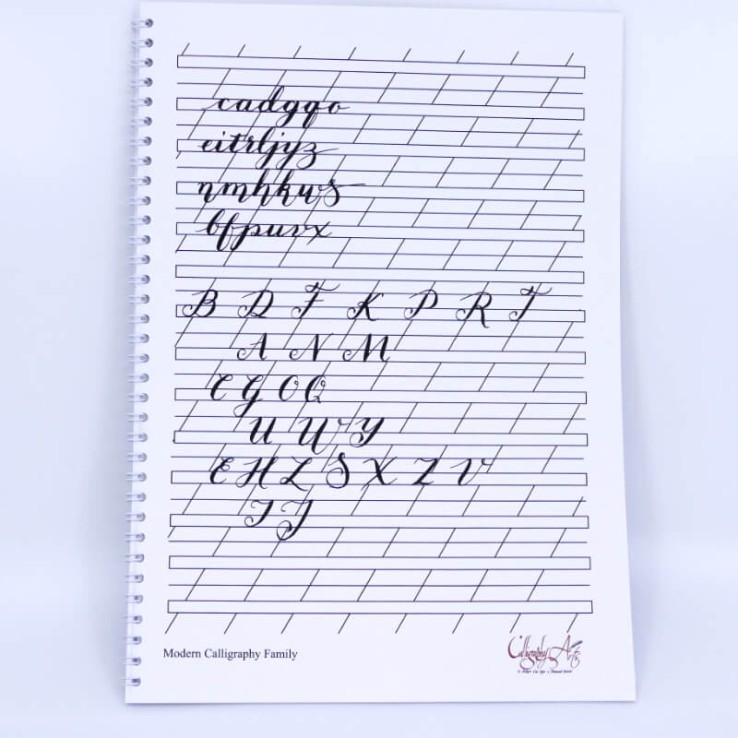 cadgqo
eitrljyz
nmhkws
bfpuvx
B D F K P R T
A N M
C G O Q
U W Y
E H L S X Z V
I J
Modern Calligraphy Family
Calligraphy Arts